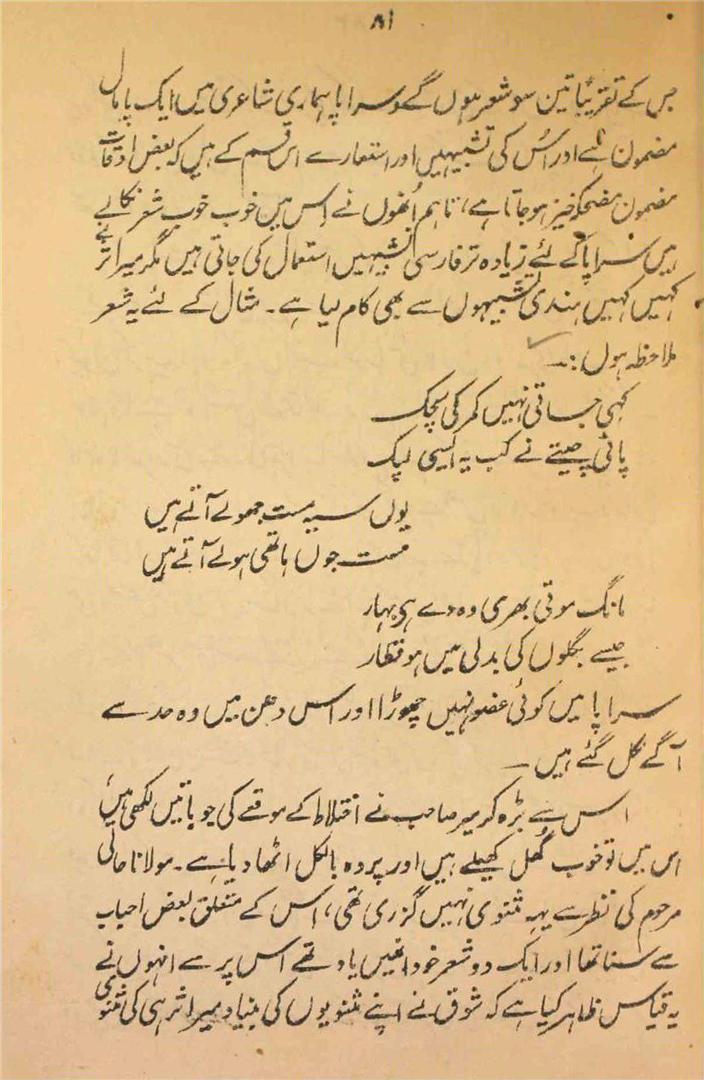 ۸۱
جس کے تقریبًا تین سو شعر ہوں گے، سراپا ہماری شاعری میں ایک پامال
مضمون ہے اور اس کی تشبیہیں اور استعارے اس قسم کے ہیں کہ بعض اوقات
مضمون مضحکہ خیز ہو جاتا ہے، تاہم اُنھوں نے اس میں خوب خوب شعر نکالے
ہیں سراپا کے لئے زیادہ تر فارسی تشبیہیں استعمال کی جاتی ہیں مگر میر اثر نے
کہیں کہیں ہندی تشبیہوں سے بھی کام لیا ہے۔ مثال کے لئے یہ شعر
ملاحظہ ہوں :۔
کہی جاتی نہیں کمر کی لچک
پائی چیتے نے کب یہ ایسی لپک
یوں سیہ مست جھولے آتے ہیں
مست جوں ہاتھی ہولے آتے ہیں
مانگ موتی بھری وہ دے ہی بہار
جیسے بگلوں کی بدلی میں ہو قطار
سراپا میں کوئی عضو نہیں چھوڑا اور اس دھن میں وہ حد سے
آگے نکل گئے ہیں ۔
اس سے بڑھ کر میر صاحب نے اختلاط کے موقعے کی جو باتیں لکھی ہیں
اس میں تو خوب کُھل کھیلے ہیں اور پردہ بالکل اٹھا دیا ہے۔ مولانا حالی
مرحوم کی نظر سے یہہ مثنوی نہیں گزری تھی، اس کے متعلق بعض احباب
سے سنا تھا اور ایک دو شعر خود انھیں یاد تھے اس پر سے انہوں نے
یہ قیاس ظاہر کیا ہے کہ شوق نے اپنے مثنویوں کی بنیاد میر اثر ہی کی مثنوی